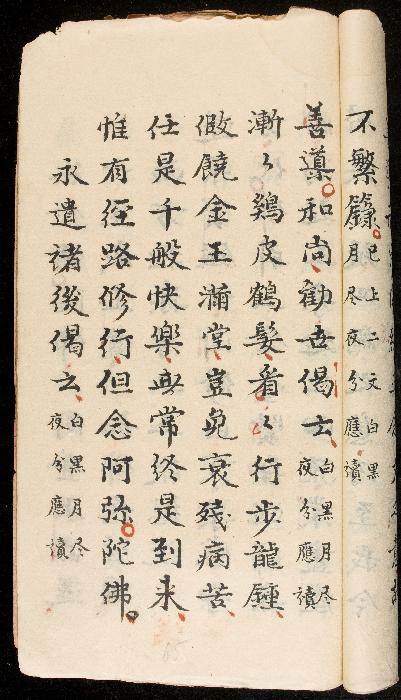 不繁錄已上二文白黑月尽夜分應讀
善導和尚勸世偈云白黑月尽夜分應讀
漸〻鷄皮鶴髮看〻行步龍鍾
假饒金玉滿堂豈免衰殘病苦
任是千般快樂無常終是到来
惟有徑路修行但念阿弥陀佛
永遺諸後偈云白黑月尽夜分應讀